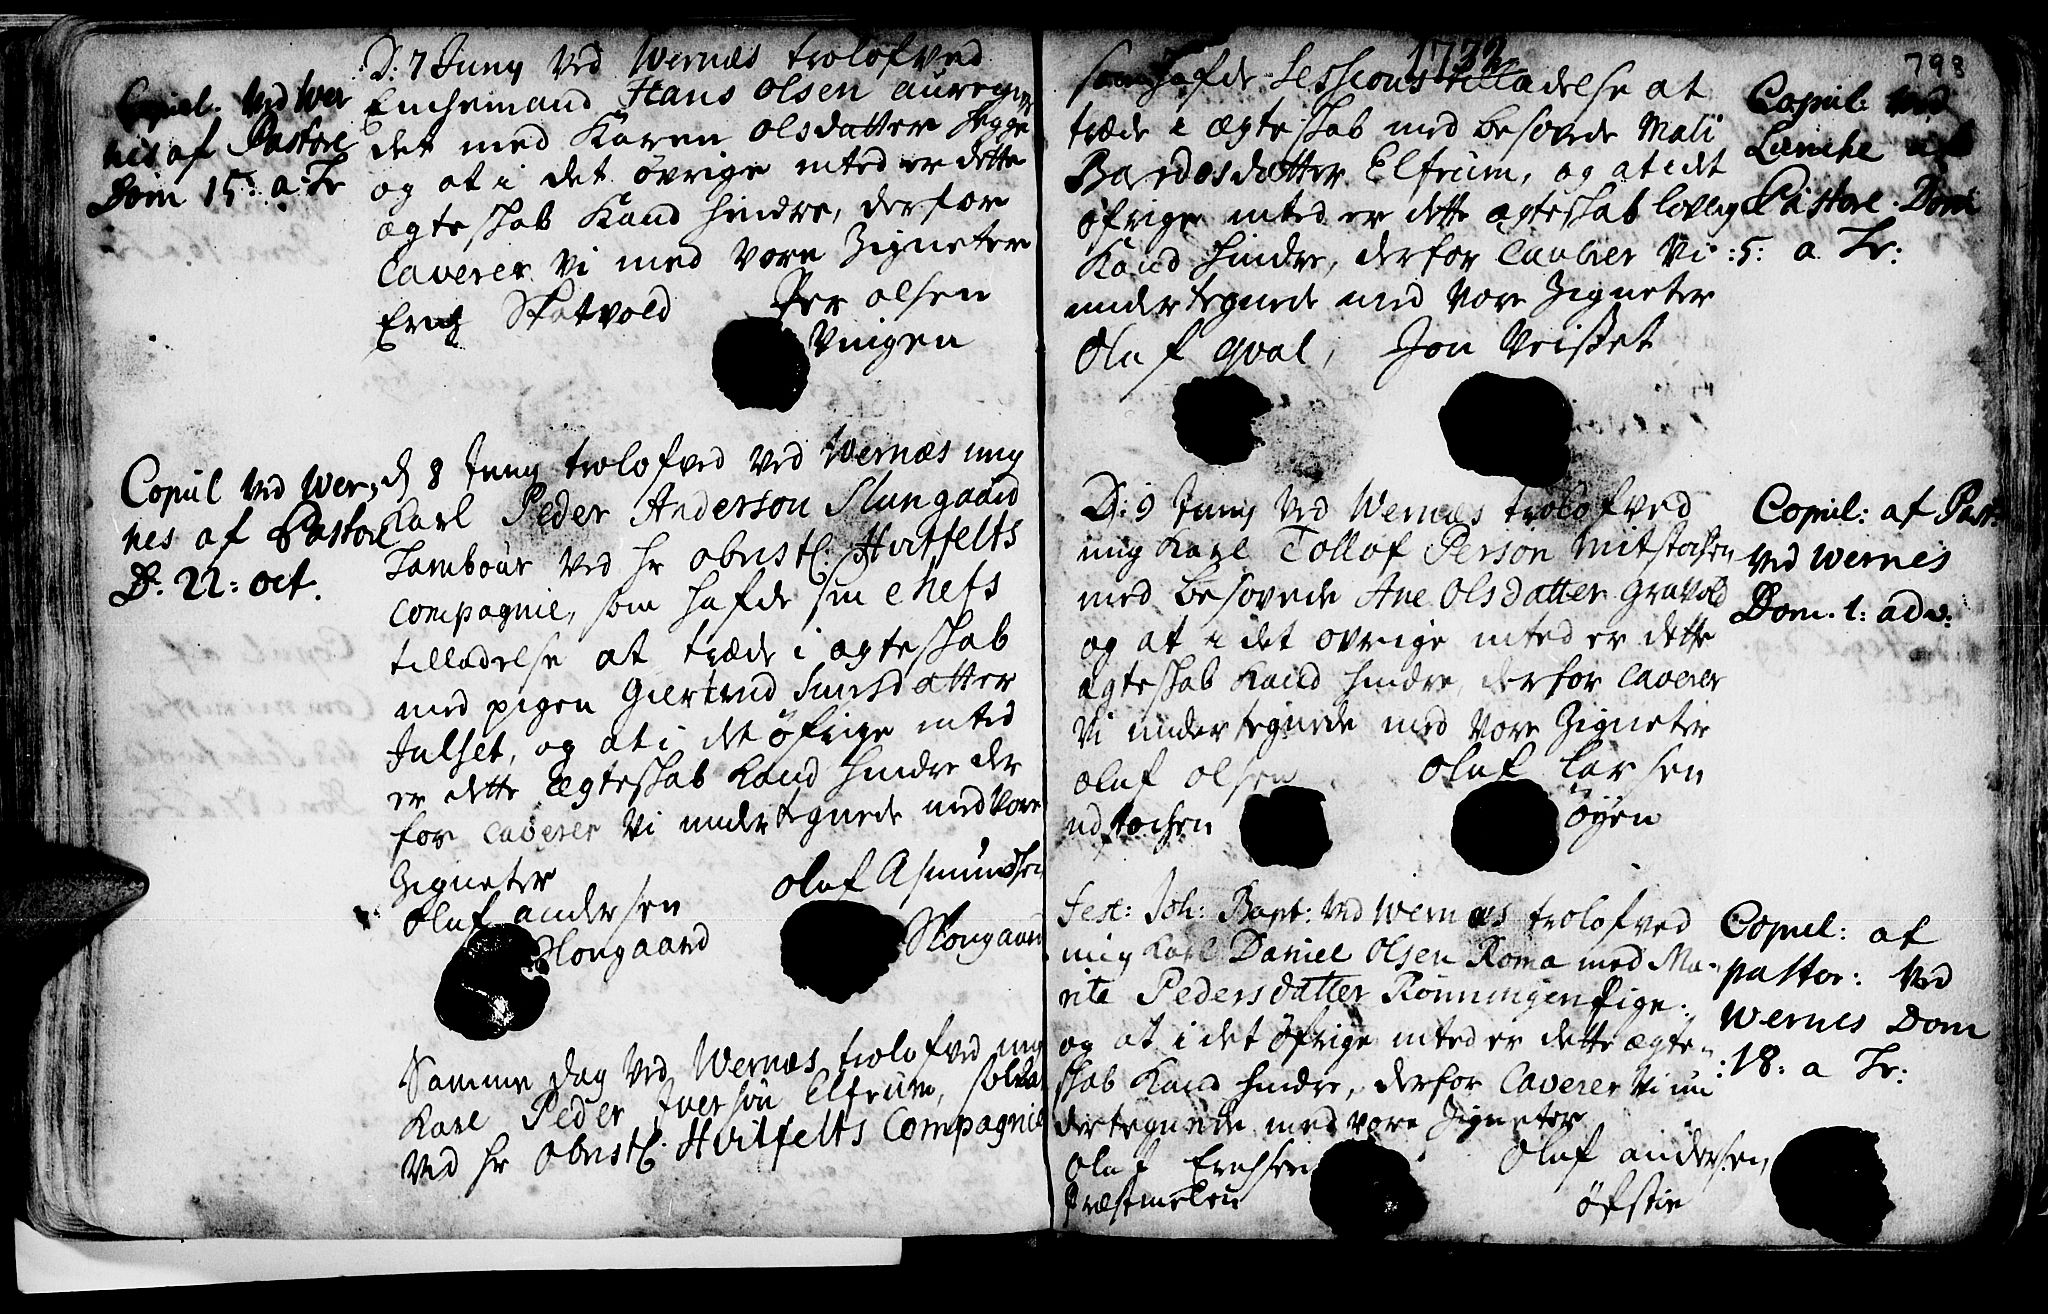 Copul. ved Wer
nes af Pastore
Dom 15: a: Tr
D: 7 Juny ved Wernæs trolofved
Enchemand Hans Olsen
det med Karen Olsdatter
og at i det øvrige inted er dette
ægteskab Kand hindre, derfor
Caverer Vi med Vore Zigneter
Erich Skatvold Per Olsen
Vingen
Copul ved Wer
nes af Pastore
D. 22: oct.
d 8 Juny trolofved ved Wernæs ung
Karl Peder Anderson
Tambour ved hr obristl: Hvitfelts
Compagnie, som hafde sin chefs
tilladelse at træde i ægteskab
med pigen Giertrud
Julset, og at i det øfrige inted
er dette Ægteskab Kand hindre der
for caverer Vi undertegnede med Vore
Zigneter
Oluf Andersen Oluf Asmundsen
Skongaard
Samme Dag ved Wernæs trolofved ung
Karl Peder Iversøn Elfrum,
ved hr obristl. Hvitfelts Compagnie
1732
793
som hafde Sessions tilladelse at
træde i ægteskab med besovede Mali
Bardosdatter Elfrum, og at i det
øfrige inted er dette ægteskab lovlig
Kand hindre, derfor Caverer Vi
undertegnede med Vore Zigneter
Oluf qval, Jon
Copul: ved
Lancke af
Pastore. Dom
:5: a Tr:
D: 9 Juny ved Wernæs trolofved
ung Karl Tollof Person
med besovede Ane Olsdatter
og at i det øvrige inted er dette
ægteskab Kand hindre, derfor Caverer
Vi undertegnede med Vore Zigneter
Oluf Olsen Oluf Larsen
Øÿen
Copul: af Past:
ved Wernes
Dom. 1: adv:
fest: Joh: Bapt: ved Wernæs trolofved
ung Karl Daniel Olsen Roma med Ma-
rite Pedersdatter Rønningen Pige:
og at i det øfrige inted er dette ægte-
skab Kand hindre, derfor Caverer Vi un
dertegnede med vore Zigneter
Oluf Erichsen Oluf Andersen
Præstmelen øfstie
Copul: af
pastor: ved
Wernes Dom
:18: a Tr: